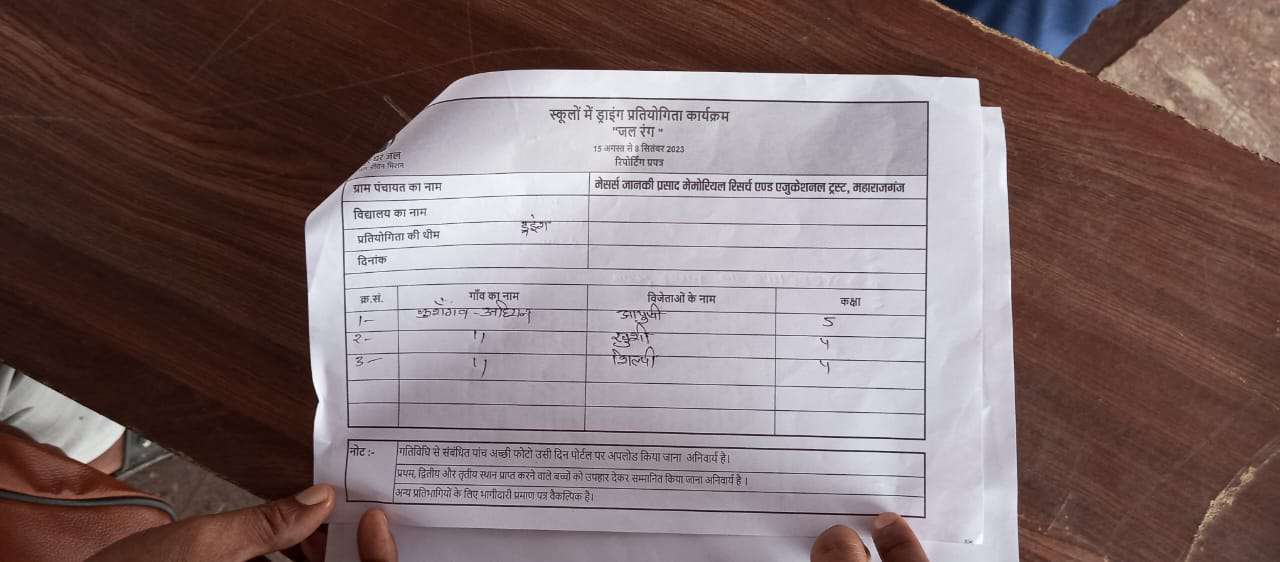 स्कूलों में ड्राइंग प्रतियोगिता कार्यक्रम
"जल रंग"
15 अगस्त से 8 सितंबर 2023
रिपोर्टिंग प्रपत्र
जल
मिशन
ग्राम पंचायत का नाम मेसर्स जानकी प्रसाद मेमोरियल रिसर्च एण्ड एजुकेशनल ट्रस्ट, महाराजगंज
विद्यालय का नाम
प्रतियोगिता की थीम
दिनांक
क्र.सं. गाँव का नाम विजेताओं के नाम कक्षा
1- 5
2- " खुशी 4
3- " शिल्पी 4
नोट :- गतिविधि से संबंधित पांच अच्छी फोटो उसी दिन पोर्टल पर अपलोड किया जाना अनिवार्य है।
प्रथम, द्वितीय और तृतीय स्थान प्राप्त करने वाले बच्चो को उपहार देकर सम्मानित किया जाना अनिवार्य है ।
अन्य प्रतिभागियो के लिए भागीदारी प्रमाण पत्र वैकल्पिक है।